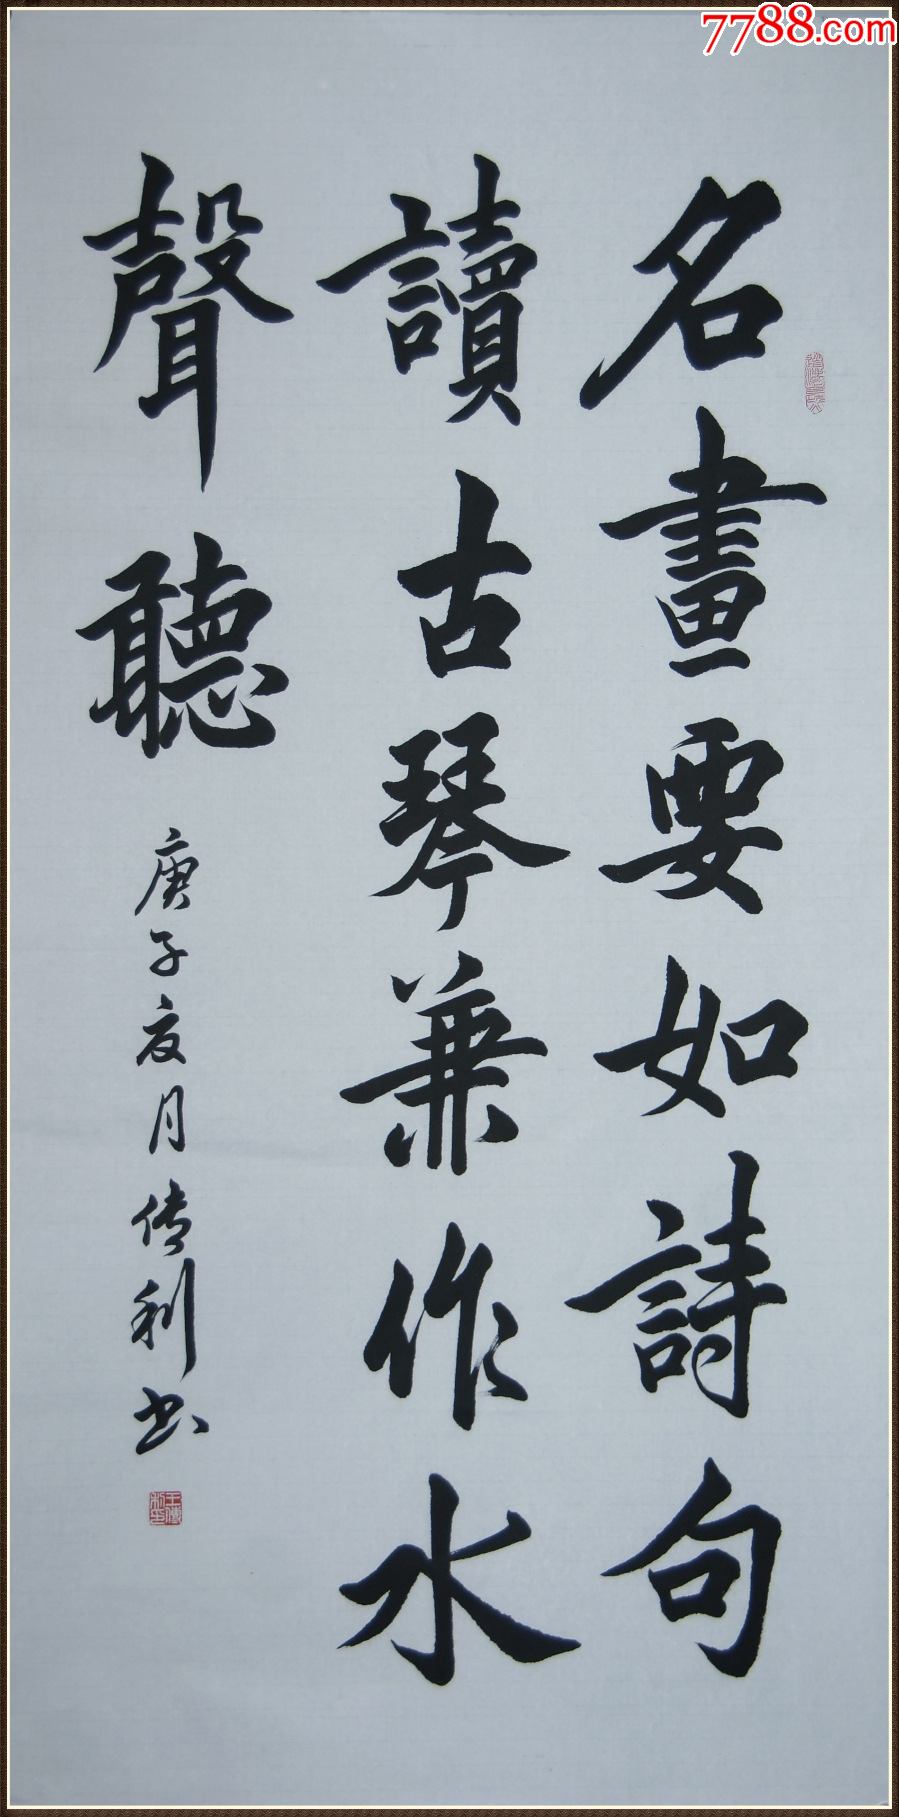 7788.com
名畫要如詩句
讀古琴兼作水
聲聽
庚子夏月传利书
王傳利印